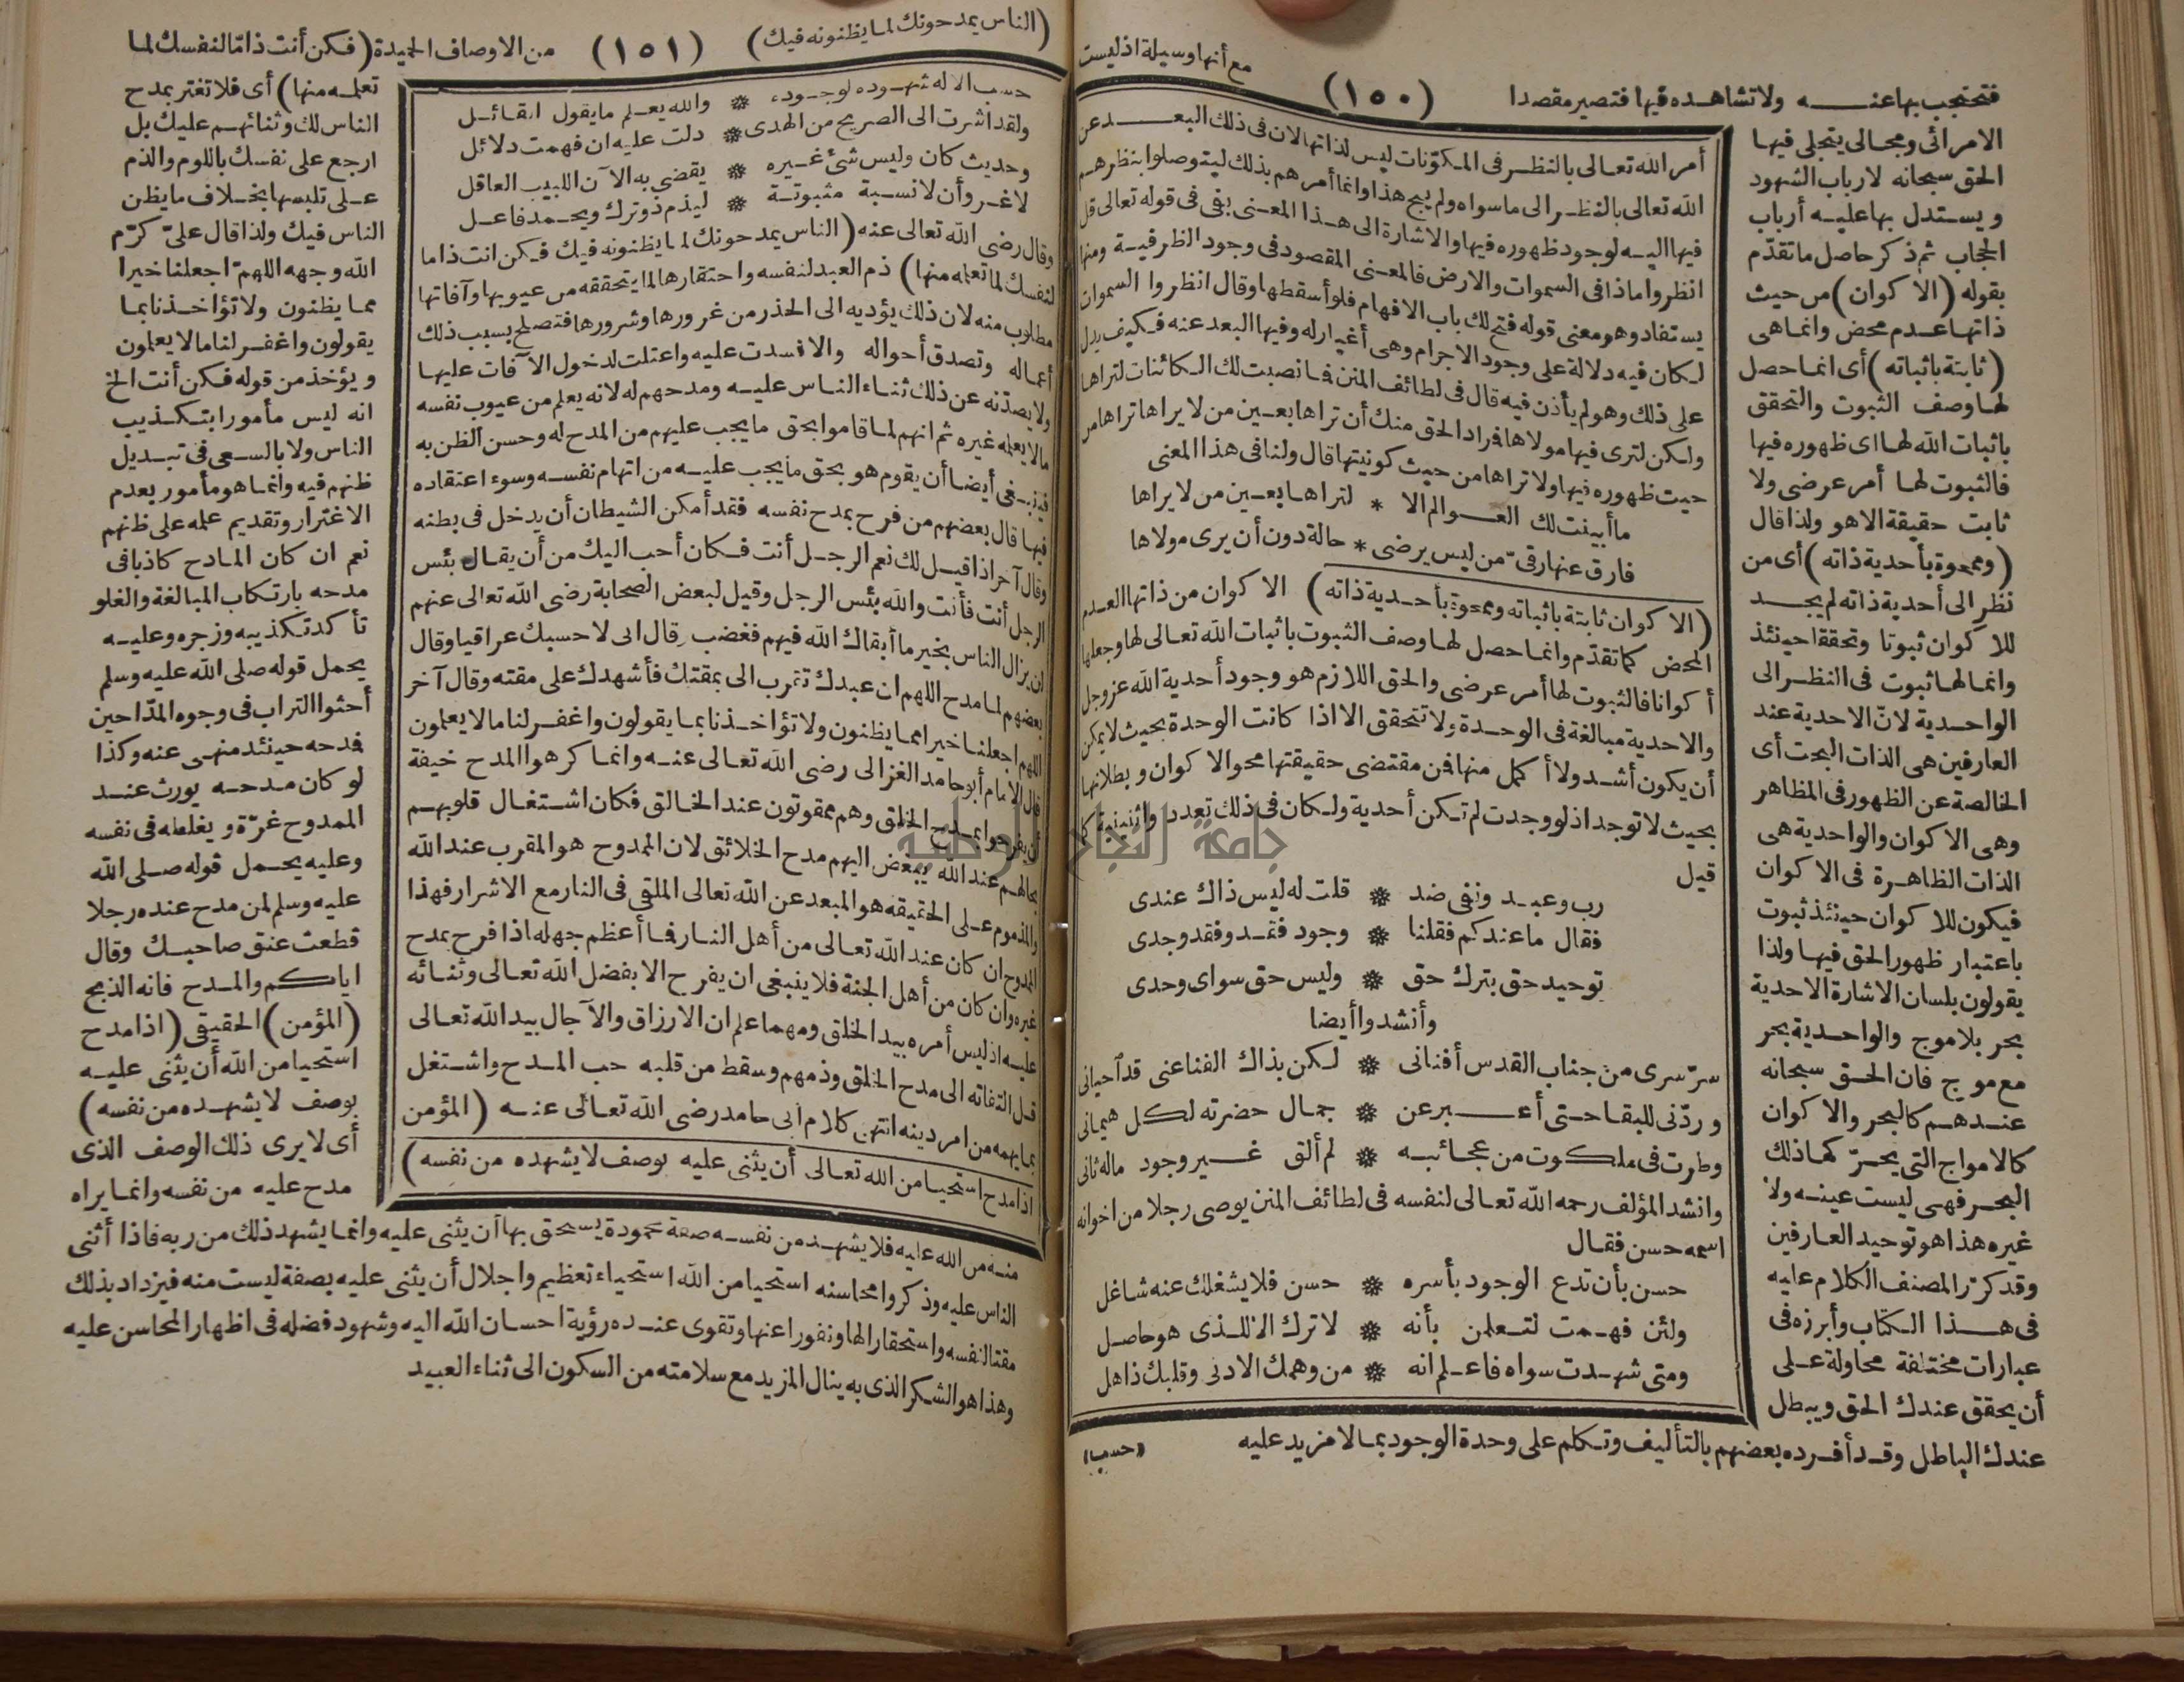 مع أنها وسيلة اذ ليست
(١٥٠)
فتحتجب بها عنه ولا تشاهده فيها فتصير مقصدا
الا مرائى ومجالى يتجلى فيها
الحق سبحانه لارباب الشهود
ويستدل بها عليه أرباب
الحجاب ثم ذكر حاصل ما تقدّم
بقوله (الا كوان) من حيث
ذاتها عدم محض وانما هى
(ثابتة باثباته) أى انما حصل
لها وصف الثبوت والتحقق
باثبات الله لها اى ظهوره فيها
فالثبوت لها أمر عرضى ولا
ثابت حقيقة الاهو ولذا قال
(وممحوة بأحدية ذاته) أى من
نظر الى أحدية ذاته لم يجد
للا كوان ثبوتا وتحققا حينئذ
وانما لها ثبوت فى النظر الى
الواحدية لانّ الاحدية عند
العارفين هى الذات البحت أى
الخالصة عن الظهور فى المظاهر
وهى الا كوان والواحدية هى
الذات الظاهرة فى الا كوان
فيكون للا كوان حينئذ ثبوت
باعتبار ظهور الحق فيها ولذا
يقولون بلسان الاشارة الاحدية
بحر بلا موج والواحدية بحر
مع موج فان الحق سبحانه
عندهم كالبحر والا كوان
كالامواج التى يحرّ كها ذلك
البحر فهى ليست عينه ولا
غيره هذا هو توحيد العارفين
وقد كرّر المصنف الكلام عليه
فى هذا الكتاب وأبرزه فى
عبارات مختلفة محاولة على
أن يحقق عندك الحق ويبطل
عندك الباطل وقد أفرده بعضهم بالتأليف وتكلم على وحدة الوجود بما لا مزيد عليه
أمر الله تعالى بالنظر فى المكوّنات ليس لذاتها لان فى ذلك البعد عن
الله تعالى بالنظر الى ما سواه ولم يبح هذا وانما أمرهم بذلك ليتوصلوا بنظرهم
فيها اليه لوجود ظهوره فيها والاشارة الى هذا المعنى بفى فى قوله تعالى قل
انظروا ماذا فى السموات والارض فالمعنى المقصود فى وجود الظرفية ومنها
يستفاد وهو معنى قوله فتح لك باب الافهام فلو أسقطها وقال انظروا السموات
لكان فيه دلالة على وجود الاجرام وهى أغيار له وفيها البعد عنه فكيف يدل
على ذلك وهو لم يأذن فيه قال فى لطائف المنن فما نصبت لك الكائنات لتراها
ولكن لترى فيها مولاها فراد الحق منك أن تراها بعين من لا يراها تراها من
حيث ظهوره فيها ولا تراها من حيث كونيتها قال ولنا فى هذا المعنى
ما أبينت لك العوالم الا * لتراها بعين من لا يراها
فارق عنها رقىّ من ليس يرضى * حالة دون أن يرى مولاها
(الا كوان ثابتة باثباته وممحوة بأحدية ذاته) الا كوان من ذاتها العدم
المحض كما تقدّم وانما حصل لها وصف الثبوت باثبات الله تعالى لها وجعلها
أ كوانا فالثبوت لها أمر عرضى والحق اللازم هو وجود أحدية الله عز وجل
والاحدية مبالغة فى الوحدة ولا تتحقق الا اذا كانت الوحدة بحيث لا يمكن
أن يكون أشد ولا أ كمل منها فمن مقتضى حقيقتها محو الا كوان وبطلانها
بحيث لا توجد اذ لو وجدت لم تكن أحدية ولكان فى ذلك تعدد واثنينية كما
قيل
رب وعبد ونفى ضد * قلت له ليس ذاك عندى
فقال ما عندكم فقلنا * وجود فقد وفقد وجدى
توحيد حق بترك حق * وليس حق سواى وحدى
وأنشدوا أيضا
سرّ سرى من جناب القدس أفنانى * لكن بذاك الفنا عنى قد آحيانى
وردّنى للبقا حتى أعبر عن * جمال حضرته لكل هيمانى
وطرت فى ملكوت من عجائبه * لم ألق غير وجود ماله ثانى
وانشد المؤلف رحمه الله تعالى لنفسه فى لطائف المنن يوصى رجلا من اخوانه
اسمه حسن فقال
حسن بأن تدع الوجود بأسره * حسن فلا يشغلك عنه شاغل
ولئن فهمت لتعلمن بأنه * لا ترك الا للذى هو حاصل
ومتى شهدت سواه فاعلم انه * من وهمك الادنى وقلبك ذاهل
(حسب)
(الناس يمدحونك لما يظنونه فيك)
(١٥١)
من الاوصاف الحميدة (فكن أنت ذامّا لنفسك لما
حسب الاله شهوده لوجوده * والله يعلم ما يقول القائل
ولقد اشرت الى الصريح من الهدى * دلت عليه ان فهمت دلائل
وحديث كان وليس شئ غيره * يقضى به الآن اللبيب العاقل
لا غرو أن لا نسبة مثبوتة * ليذم ذو ترك ويحمد فاعل
وقال رضى الله تعالى عنه (الناس يمدحونك لما يظنونه فيك فكن انت ذاما
لنفسك لما تعلمه منها) ذم العبد لنفسه واحتقارها لما يتحققه من عيوبها وآفاتها
مطلوب منه لان ذلك يؤديه الى الحذر من غرورها وشرورها فتصلح بسبب ذلك
أعماله وتصدق أحواله والا فسدت عليه واعتلت لدخول الآفات عليها
ولا يصدّنه عن ذلك ثناء الناس عليه ومدحهم له لانه يعلم من عيوب نفسه
مالا يعلمه غيره ثم انهم لما قاموا بحق ما يجب عليهم من المدح له وحسن الظن به
فينبغى أيضا أن يقوم هو بحق ما يجب عليه من اتهام نفسه وسوء اعتقاده
فيها قال بعضهم من فرح بمدح نفسه فقد أمكن الشيطان أن يدخل فى بطنه
وقال آخر اذا قيل لك نعم الرجل أنت فكان أحب اليك من أن يقال بئس
الرجل أنت فأنت والله بئس الرجل وقيل لبعض الصحابة رضى الله تعالى عنهم
لن يزال الناس بخير ما أبقاك الله فيهم فغضب وقال انى لا حسبك عراقيا وقال
بعضهم لما مدح اللهم ان عبدك تقرب الى بمقتك فأشهدك على مقته وقال آخر
اللهم اجعلنا خيرا مما يظنون ولا تؤاخذنا بما يقولون واغفر لنا مالا يعلمون
قال الامام أبو حامد الغزالى رضى الله تعالى عنه وانما كرهوا المدح خيفة
أن يفرحوا بمدح الخلق وهم ممقوتون عند الخالق فكان اشتغال قلوبهم
بحالهم عند الله يبغض اليهم مدح الخلائق لان الممدوح هو المقرب عند الله
والمذموم على الحقيقة هو المبعد عن الله تعالى الملقى فى النار مع الاشرار فهذا
الممدوح ان كان عند الله تعالى من أهل النار فما أعظم جهله اذا فرح بمدح
غيره وان كان من أهل الجنة فلا ينبغى ان يفرح الا بفضل الله تعالى وثنائه
عليه اذ ليس أمره بيد الخلق ومهما علم ان الارزاق والآجال بيد الله تعالى
قل التفاته الى مدح الخلق وذمهم وسقط من قلبه حب المدح واشتغل
بما يهمه من امر دينه انتهى كلام أبى حامد رضى الله تعالى عنه (المؤمن
اذا مدح استحيا من الله تعالى أن يثنى عليه بوصف لا يشهده من نفسه)
تعلمه منها) أى فلا تغتر بمدح
الناس لك وثنائهم عليك بل
ارجع على نفسك باللوم والذم
على تلبسها بخلاف ما يظن
الناس فيك ولذا قال علىّ كرّم
الله وجهه اللهمّ اجعلنا خيرا
مما يظنون ولا تؤاخذنا بما
يقولون واغفر لنا مالا يعلمون
ويؤخذ من قوله فكن أنت الخ
انه ليس مأمورا بتكذيب
الناس ولا بالسعى فى تبديل
ظنهم فيه وانما هو مأمور بعدم
الاغترار وتقديم علمه على ظنهم
نعم ان كان المادح كاذبا فى
مدحه بارتكاب المبالغة والغلو
تأ كد تكذيبه وزجره وعليه
يحمل قوله صلى الله عليه وسلم
أحثوا التراب فى وجوه المدّاحين
فدحه حينئذ منهى عنه وكذا
لو كان مدحه يورث عند
الممدوح غرّة ويغلطه فى نفسه
وعليه يحمل قوله صلى الله
عليه وسلم لمن مدح عنده رجلا
قطعت عنق صاحبك وقال
اياكم والمدح فانه الذبح
(المؤمن) الحقيقى (اذا مدح
استحيا من الله أن يثنى عليه
بوصف لا يشهده من نفسه)
أى لا يرى ذلك الوصف الذى
مدح عليه من نفسه وانما يراه
منه من الله عليه فلا يشهد من نفسه صفة محمودة يستحق بها أن يثنى عليه وانما يشهد ذلك من ربه فاذا أثنى
الناس عليه وذكروا محاسنه استحيا من الله استحياء تعظيم واجلال أن يثنى عليه بصفة ليست منه فيزداد بذلك
مقتا لنفسه واستحقارا لها ونفورا عنها وتقوى عنده رؤية احسان الله اليه وشهود فضله فى اظهار المحاسن عليه
وهذا هو الشكر الذى به ينال المزيد مع سلامته من السكون الى ثناء العبيد
جامعة النجاح الوطنية